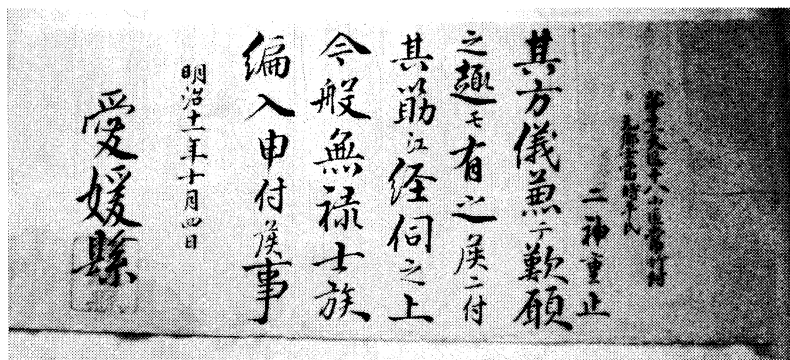 第十一大区十八小区当竹村
元郷士当時平民
二神重止
其方儀兼テ歎願
之趣モ有之候ニ付
其筋江経伺之上
今般無禄士族
編入申付候事
明治十一年十月四日
愛媛縣